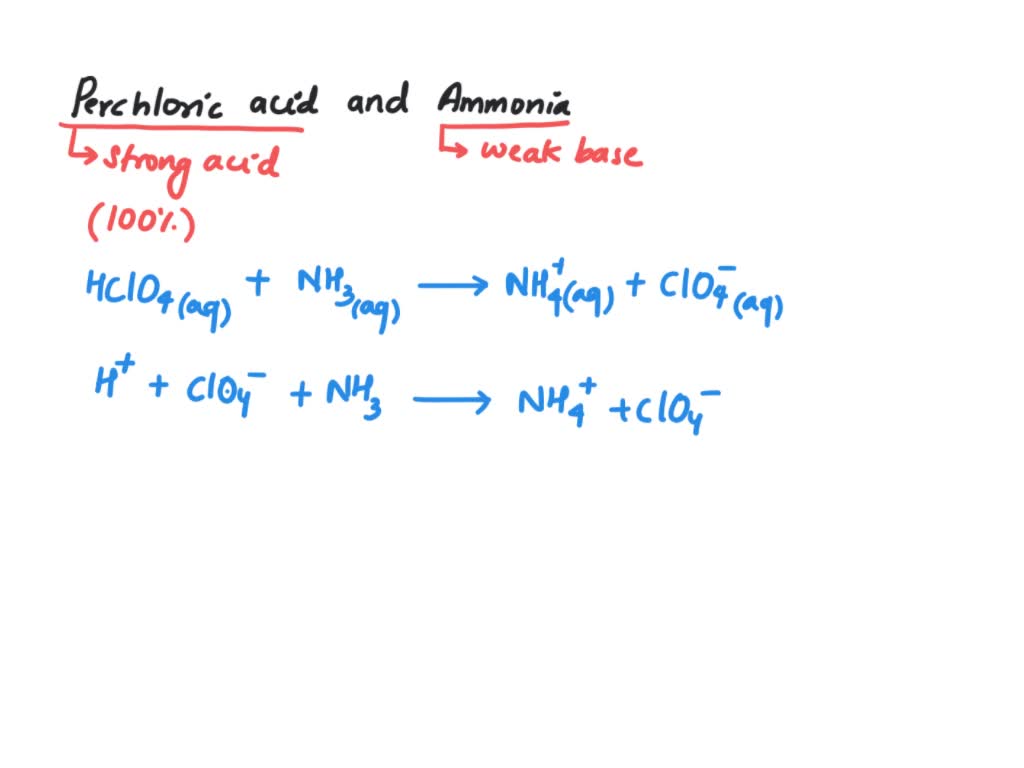 Perchloric acid and Ammonia
↳ strong acid ↳ weak base
(100%)
HClO₄(aq) + NH₃(aq) ⟶ NH₄⁺(aq) + ClO₄⁻(aq)
H⁺ + ClO₄⁻ + NH₃ ⟶ NH₄⁺ + ClO₄⁻